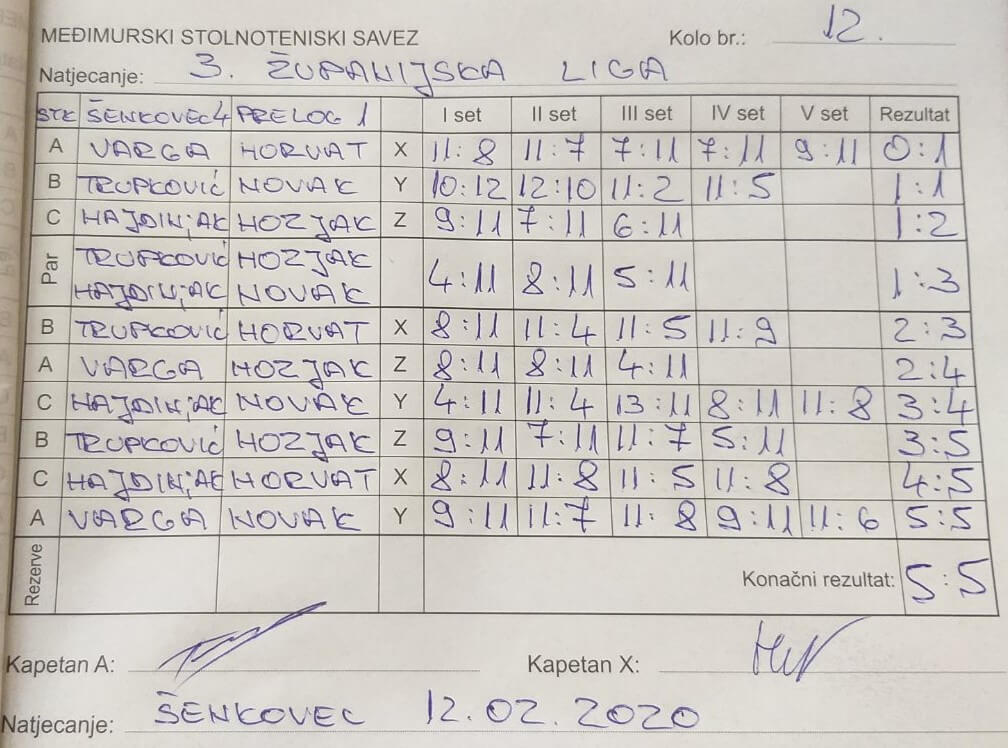 MEĐIMURSKI STOLNOTENISKI SAVEZ Kolo br.: 12.
Natjecanje: 3. ŽUPANIJSKA LIGA
STK ŠENKOVEC 4 PRELOG 1 I set II set III set IV set V set Rezultat
A VARGA HORVAT X 11:8 11:7 7:11 7:11 9:11 0:1
B TRUPKOVIĆ NOVAK Y 10:12 12:10 11:2 11:5 1:1
C HAJDINJAK HOZJAK Z 9:11 7:11 6:11 1:2
Par TRUPKOVIĆ HOZJAK
HAJDINJAK NOVAK 4:11 8:11 5:11 1:3
B TRUPKOVIĆ HORVAT X 8:11 11:4 11:5 11:9 2:3
A VARGA HOZJAK Z 8:11 8:11 4:11 2:4
C HAJDINJAK NOVAK Y 4:11 11:4 13:11 8:11 11:8 3:4
B TRUPKOVIĆ HOZJAK Z 9:11 7:11 11:7 5:11 3:5
C HAJDINJAK HORVAT X 8:11 11:8 11:5 11:8 4:5
A VARGA NOVAK Y 9:11 11:7 11:8 9:11 11:6 5:5
Rezerve Konačni rezultat: 5:5
Kapetan A: Kapetan X:
Natjecanje: ŠENKOVEC 12.02.2020